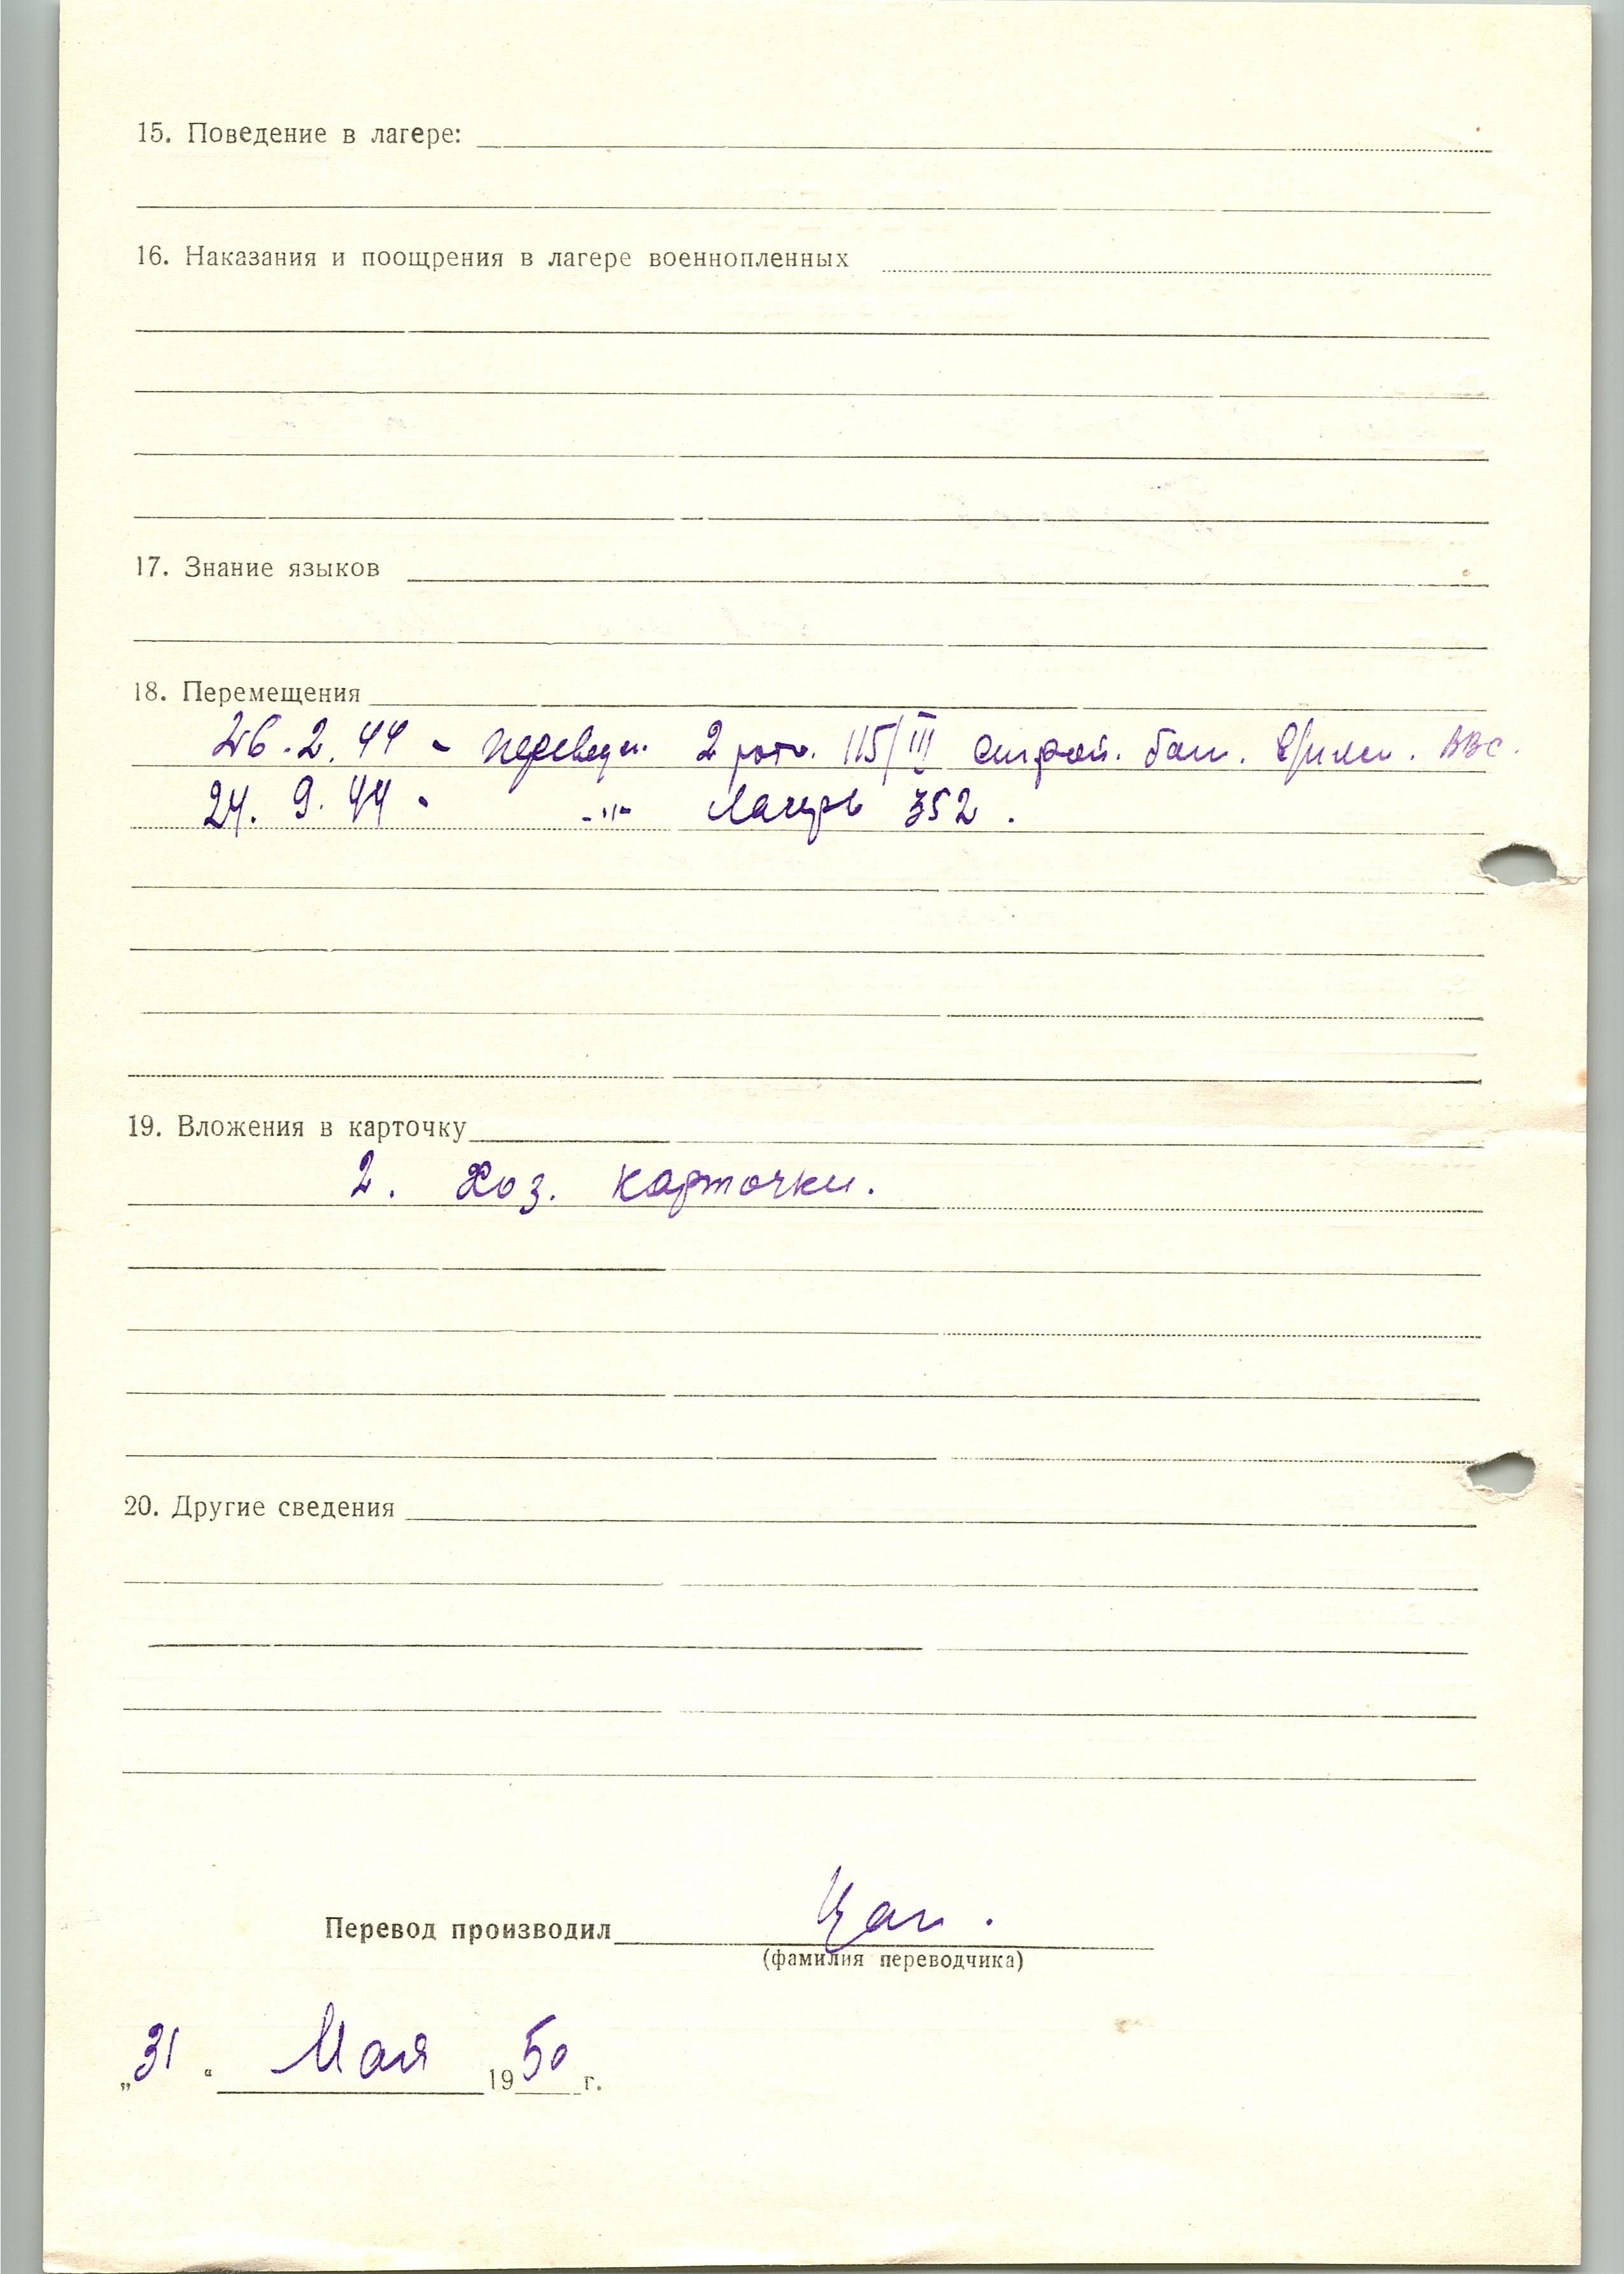 15. Поведение в лагере:
16. Наказания и поощрения в лагере военнопленных
17. Знание языков
18. Перемещения
26.2.44 - переведен. 2 рота. 115/III строй. бат. ВВС.
24.9.44 - -"- лагерь 352.
19. Вложения в карточку
2. Хоз. карточки.
20. Другие сведения
Перевод производил
(фамилия переводчика)
„31“ Мая 1950 г.